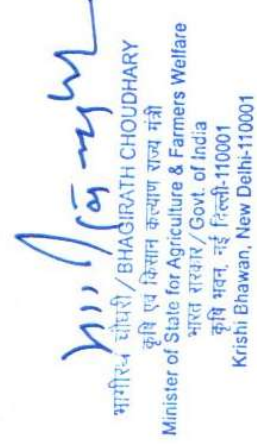 भागीरथ चौधरी / BHAGIRATH CHOUDHARY
कृषि एवं किसान कल्याण राज्य मंत्री
Minister of State for Agriculture & Farmers Welfare
भारत सरकार/Govt. of India
कृषि भवन, नई दिल्ली-110001
Krishi Bhawan, New Delhi-110001